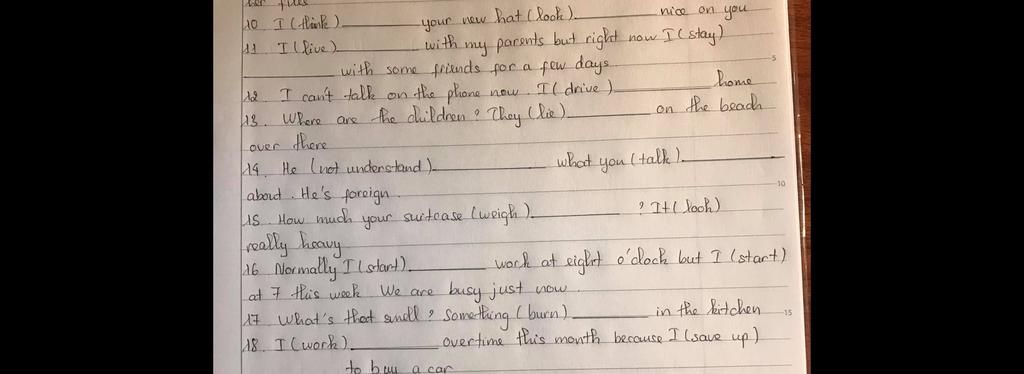 10 I (think)__________ your new hat (look)__________ nice on you
11 I (live)__________ with my parents but right now I (stay)
__________ with some friends for a few days
5
12. I can't talk on the phone now. I (drive)__________ home
13. Where are the children? They (lie)__________ on the beach
over there
14. He (not understand)__________ what you (talk)__________
about. He's foreign.
10
15. How much your suitcase (weigh)__________? It (look)
really heavy
16 Normally I (start)__________ work at eight o'clock but I (start)
at 7 this week We are busy just now.
17 What's that smell? Something (burn)__________ in the kitchen
15
18. I (work)__________ overtime this month because I (save up)
to buy a car